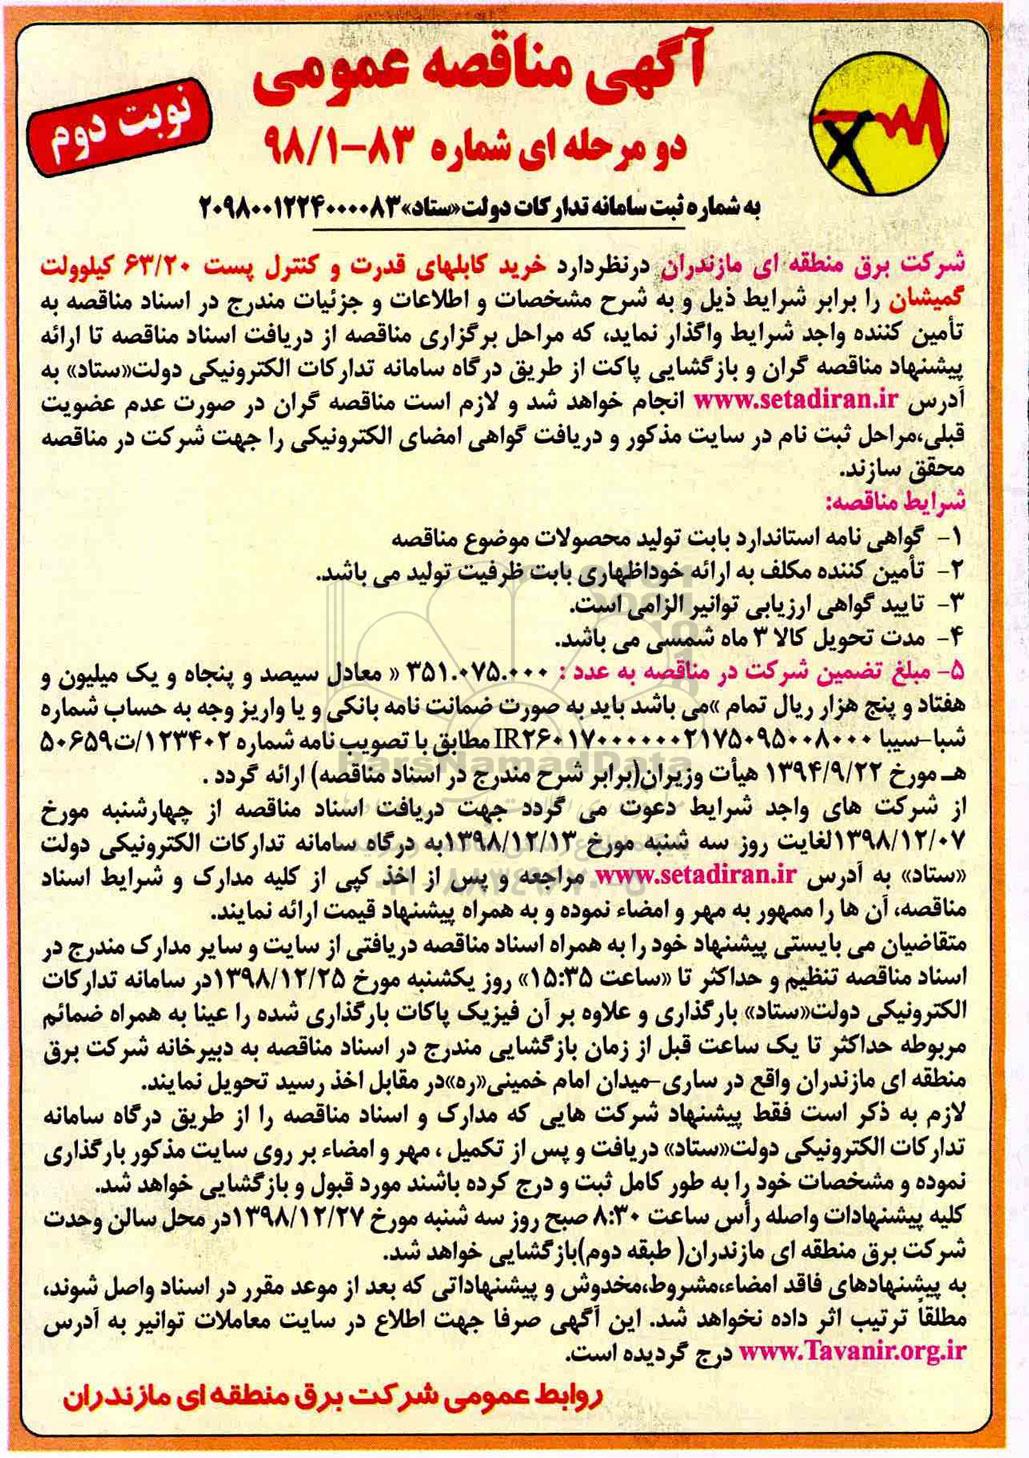 آگهی مناقصه عمومی
نوبت دوم
دو مرحله ای شماره ۸۳-۹۸/۱
به شماره ثبت سامانه تدارکات دولت«ستاد»۲۰۹۸۰۰۱۲۲۴۰۰۰۰۸۳
شرکت برق منطقه ای مازندران درنظردارد خرید کابلهای قدرت و کنترل پست ۶۳/۲۰ کیلوولت
گمیشان را برابر شرایط ذیل و به شرح مشخصات و اطلاعات و جزئیات مندرج در اسناد مناقصه به
تأمین کننده واجد شرایط واگذار نماید، که مراحل برگزاری مناقصه از دریافت اسناد مناقصه تا ارائه
پیشنهاد مناقصه گران و بازگشایی پاکت از طریق درگاه سامانه تدارکات الکترونیکی دولت«ستاد» به
آدرس www.setadiran.ir انجام خواهد شد و لازم است مناقصه گران در صورت عدم عضویت
قبلی،مراحل ثبت نام در سایت مذکور و دریافت گواهی امضای الکترونیکی را جهت شرکت در مناقصه
محقق سازند.
شرایط مناقصه:
۱- گواهی نامه استاندارد بابت تولید محصولات موضوع مناقصه
۲- تأمین کننده مکلف به ارائه خوداظهاری بابت ظرفیت تولید می باشد.
۳- تایید گواهی ارزیابی توانیر الزامی است.
۴- مدت تحویل کالا ۳ ماه شمسی می باشد.
۵- مبلغ تضمین شرکت در مناقصه به عدد : ۳۵۱.۰۷۵.۰۰۰ « معادل سیصد و پنجاه و یک میلیون و
هفتاد و پنج هزار ریال تمام »می باشد باید به صورت ضمانت نامه بانکی و یا واریز وجه به حساب شماره
شبا-سیبا IR۲۶۰۱۷۰۰۰۰۰۰۰۲۱۷۵۰۹۵۰۰۸۰۰۰ مطابق با تصویب نامه شماره ۱۲۳۴۰۲/ت۵۰۶۵۹
هـ مورخ ۱۳۹۴/۹/۲۲ هیأت وزیران(برابر شرح مندرج در اسناد مناقصه) ارائه گردد .
از شرکت های واجد شرایط دعوت می گردد جهت دریافت اسناد مناقصه از چهارشنبه مورخ
۱۳۹۸/۱۲/۰۷لغایت روز سه شنبه مورخ ۱۳۹۸/۱۲/۱۳به درگاه سامانه تدارکات الکترونیکی دولت
«ستاد» به آدرس www.setadiran.ir مراجعه و پس از اخذ کپی از کلیه مدارک و شرایط اسناد
مناقصه، آن ها را ممهور به مهر و امضاء نموده و به همراه پیشنهاد قیمت ارائه نمایند.
متقاضیان می بایستی پیشنهاد خود را به همراه اسناد مناقصه دریافتی از سایت و سایر مدارک مندرج در
اسناد مناقصه تنظیم و حداکثر تا «ساعت ۱۵:۳۵» روز یکشنبه مورخ ۱۳۹۸/۱۲/۲۵در سامانه تدارکات
الکترونیکی دولت«ستاد» بارگذاری و علاوه بر آن فیزیک پاکات بارگذاری شده را عینا به همراه ضمائم
مربوطه حداکثر تا یک ساعت قبل از زمان بازگشایی مندرج در اسناد مناقصه به دبیرخانه شرکت برق
منطقه ای مازندران واقع در ساری-میدان امام خمینی«ره»در مقابل اخذ رسید تحویل نمایند.
لازم به ذکر است فقط پیشنهاد شرکت هایی که مدارک و اسناد مناقصه را از طریق درگاه سامانه
تدارکات الکترونیکی دولت«ستاد» دریافت و پس از تکمیل ، مهر و امضاء بر روی سایت مذکور بارگذاری
نموده و مشخصات خود را به طور کامل ثبت و درج کرده باشند مورد قبول و بازگشایی خواهد شد.
کلیه پیشنهادات واصله رأس ساعت ۸:۳۰ صبح روز سه شنبه مورخ ۱۳۹۸/۱۲/۲۷در محل سالن وحدت
شرکت برق منطقه ای مازندران( طبقه دوم)بازگشایی خواهد شد.
به پیشنهادهای فاقد امضاء،مشروط،مخدوش و پیشنهاداتی که بعد از موعد مقرر در اسناد واصل شوند،
مطلقاً ترتیب اثر داده نخواهد شد. این آگهی صرفا جهت اطلاع در سایت معاملات توانیر به آدرس
www.Tavanir.org.ir درج گردیده است.
روابط عمومی شرکت برق منطقه ای مازندران
ParsNamadData